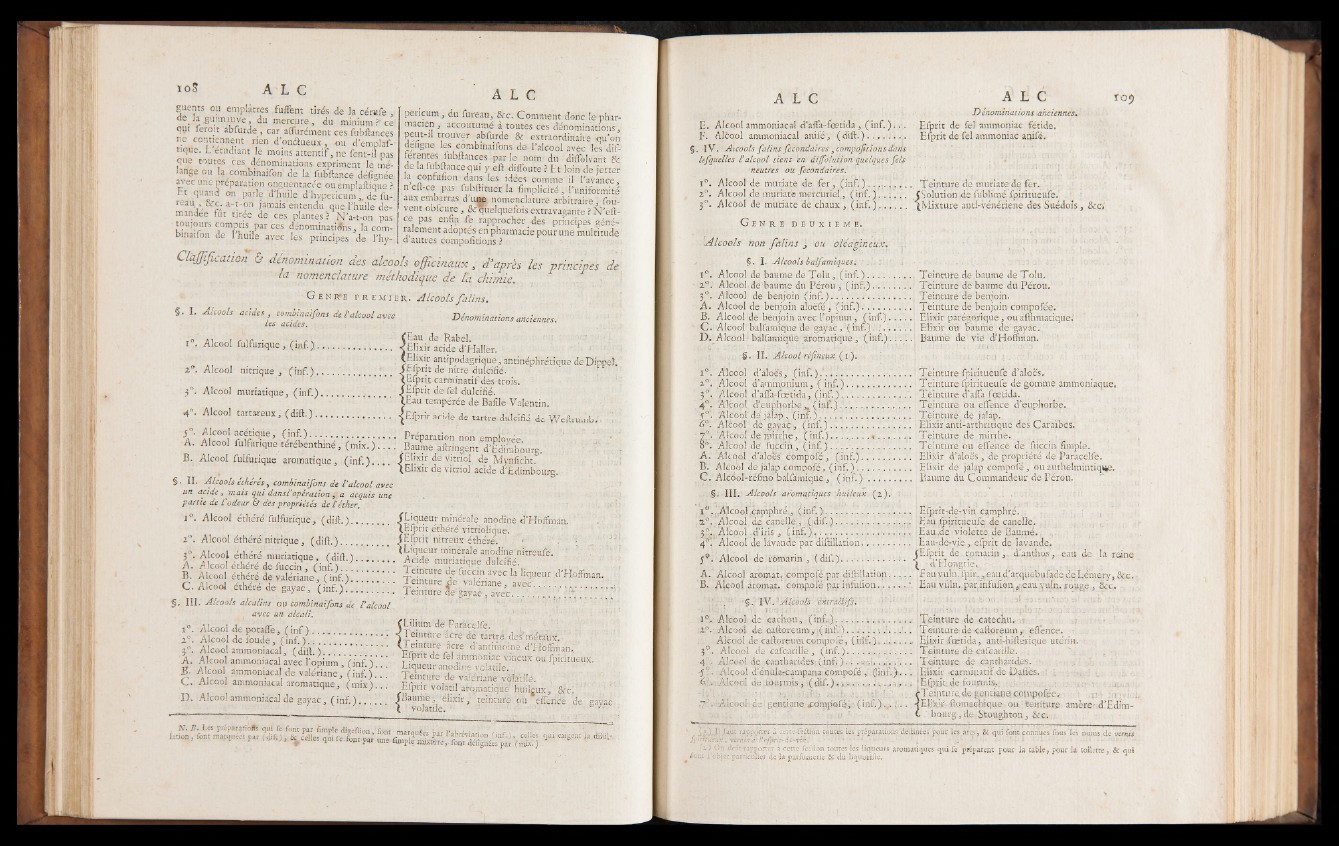 108 A L C
A L C
guents ou emplâtres fuffent tirés de la cérufe,
de la guimauve, du mercure, du minium ? ce
qui feroit abfurde, car affurément ces fubftances
ne contiennent rien d'onctueux, ou d'emplaf-
tique. L'étudiant le moins attentif, ne fent-il pas
que toutes ces dénominations expriment le mê-
lange ou la combinaifon de la fubftance défignée
avec une préparation onguentacée ou emplaftique ?
Et quand on parle d'huile d'hypericum, de fu-
reau, &c. a-t-on jamais entendu que l'huile de-
mandée fût tirée de ces plantes ? N'a-t-on pas
toujours compris par ces dénominations, la com-
binaifon de l'huile avec les principes de l'hy-
pericum, du fureau, &c. Comment donc le phar-
macien, accoutumé à toutes ces dénominations,
peut-il trouver abfurde & extraordinaire qu'on
défigne les combinaifons de l'alcool avec les dif-
férentes fubftances par le nom du diffolvant &
de la fubftance qui y eft diffoute ? Et loin de jetter
la confufion dans les idées comme il l'avance,
n'eft-ce pas fubftituer la fimplicité, l'uniformité
aux embarras d'une nomenclature arbitraire, fou-
vent obfcure, & quelquefois extravagante ? N'eft-
ce pas enfin fe rapprocher des principes géné-
ralement adoptés en pharmacie pour une multitude
d'autres compofitions ?
Claffification & dénomination des alcools officinaux, d'après les principes de
la nomenclature méthodique de la chimie.
GENRE PREMIER. Alcools falins.
§. I. Alcools acides, combinaifons de l'alcool avec
les acides.
Dénominations anciennes.
1°. Alcool fulfurique, (inf.)............... {Eau de Rabel.
Elixir acide d'Haller.
Elixir antipodagrique, antinéphrétique de Dippel.
2°. Alcool nitrique, (inf.)............... {Efprit de nitre dulcifié.
Efprit carminatif des trois.
3°. Alcool muriatique, (inf.)............... {Efprit de fel dulcifié.
Eau tempérée de Bafile Valentin.
4°. Alcool tartareux, (dift.)............... {Efprit acide de tartre dulcifié de Weftrumb.
5°. Alcool acétique, (inf.)............... Préparation non employée.
A. Alcool fulfurique térébenthiné, (mix.)... Baume aftringent d'Edimbourg.
B. Alcool fulfurique aromatique, (inf.).... {Elixir de vitriol de Mynficht.
Elixir de vitriol acide d'Edimbourg.
§. II. Alcools éthérés, combinaifons de l'alcool avec
un acide, mais qui dans l'opération, a acquis une
partie de l'odeur & des propriétés de l'éther.
1°. Alcool éthéré fulfurique, (dift.)........ {Liqueur minérale anodine d'Hoffman.
Efprit éthéré vitriolique.
2°. Alcool éthéré nitrique, (dift.)......... {Efprit nitreux éthéré.
Liqueur minérale anodine nitreufe.
3°. Alcool éthéré muriatique, (dift.)........ Acide muriatique dulcifié.
A. Alcool éthéré de fuccin, (inf.).......... Teinture de fuccin avec la liqueur d'Hoffman.
B. Alcool éthéré de valériane, (inf.)........ Teinture de valériane, avec...............
C. Alcool éthéré de gayac, (inf.).......... Teinture de gayac, avec...............
§. III. Alcools alcalins ou combinaifons de l'alcool
avec un alcali.
1°. Alcool de potaffe, (inf.)............... {Lilium de Paracelfe.
2°. Alcool de foude, (inf.)............... Teinture âcre de tartre des métaux.
Teinture âcre d'antimoine d'Hoffman.
3°. Alcool ammoniacal, (dift.)............... Efprit de fel ammoniac vineux ou fpiritueux.
A. Alcool ammoniacal avec l'opium, (inf.)... Liqueur anodine volatile.
B. Alcool ammoniacal de valériane, (inf.)... Teinture de valériane volatile.
C. Alcool ammoniacal aromatique, (mix)... Efprit volatil aromatique huileux, &c.
D. Alcool ammoniacal de gayac, (inf.)...... {Baume, élixir, teinture ou effence de gayac
volatile.
N. B. Les préparations qui fe font par fimple digeftion, font marquées par l'abréviation (inf.), celles qui exigent la diftil-
lation, font marquées par (dift.), & celles qui fe font par une fimple mixture, font défignées par (mix.)
A L C
A L C 109
Dénominations anciennes.
E. Alcool ammoniacal d'affa-fœtida, (inf.)... Efprit de fel ammoniac fétide.
F. Alcool ammoniacal anifé, (dift.)........ Efprit de fel ammoniac anifé.
§. IV. Alcools falins fecondaires, compofitions dans
lefquelles l'alcool tient en diffolution quelques fels
neutres ou fecondaires.
1°. Alcool de muriate de fer, (inf.)......... Teinture de muriate de fer.
2°. Alcool de muriate mercuriel, (inf.)...... {Solution de fublimé fpiritueufe.
3°. Alcool de muriate de chaux, (inf.)....... Mixture anti-vénérienne des Suédois, &c.
GENRE DEUXIEME.
Alcools non falins, ou oléagineux.
§. I. Alcools balfamiques.
1°. Alcool de baume de Tolu, (inf.)......... Teinture de baume de Tolu.
2°. Alcool de baume du Pérou, (inf.)........ Teinture de baume du Pérou.
3°. Alcool de benjoin (inf.)............... Teinture de benjoin.
A. Alcool de benjoin aloëfé, (inf.).......... Teinture de benjoin compofée.
B. Alcool de benjoin avec l'opium, (inf.)..... Elixir parégorique, ou afthmatique.
C. Alcool balfamique de gayac, (inf.)....... Elixir ou baume de gayac.
D. Alcool balfamique aromatique, (inf.)..... Baume de vie d'Hoffman.
§. II. Alcool réfineux (1).
1°. Alcool d'aloës, (inf.)............... Teinture fpiritueufe d'aloës.
2°. Alcool d'ammonium, (inf.)............. Teinture fpiritueufe de gomme ammoniaque.
3°. Alcool d'affa-fœtida, (inf.)............ Teinture d'affa fœtida.
4°. Alcool d'euphorbe, (inf.)............... Teinture ou effence d'euphorbe.
5°. Alcool de jalap, (inf.)............... Teinture de jalap.
6°. Alcool de gayac, (inf.)............... Elixir anti-arthritique des Caraïbes.
7°. Alcool de mirthe, (inf.)............... Teinture de mirthe.
8°. Alcool de fuccin, (inf.)............... Teinture ou effence de fuccin fimple.
A. Alcool d'aloës compofé, (inf.).......... Elixir d'aloës, de propriété de Paracelfe.
B. Alcool de jalap compofé, (inf.).......... Elixir de jalap compofé, ou anthelmintique.
C. Alcool-réfino balfamique, (inf.)......... Baume du Commandeur de Pérou.
§. III. Alcools aromatiques huileux (2).
1°. Alcool camphré, (inf.)............... Efprit-de-vin camphré.
2°. Alcool de canelle, (dif.)............... Eau fpiritueufe de canelle.
3°. Alcool d'iris, (inf.)............... Eau de violette de Baumé.
4°. Alcool de lavande par diftillation......... Eau-de-vie, efprit de lavande.
5°. Alcool de romarin, (dif.)............... {Efprit de romarin, d'anthos, eau de la reine
d'Hongrie.
A. Alcool aromat. compofé par diftillation..... Eau vuln. fpir., eau d'arquebufade de Lémery, &c.
B. Alcool aromat. compofé par infufion....... Eau vuln. par infufion, eau vuln. rouge, &c.
§. IV. Alcools extractifs.
1°. Alcool de cachou, (inf.)............... Teinture de catechu.
2°. Alcool de caftoreum, (inf.)............. Teinture de caftoreum, effence.
Alcool de caftoreum compofé, (inf.)....... Elixir fœtida, anti-hiftérique utérin.
3°. Alcool de cafcarille, (inf.)............. Teinture de cafcarille.
4°. Alcool de cantharides (inf.)............. Teinture de cantharides.
5°. Alcool d'énula-campana compofé, (inf.)... Elixir carminatif de Dafies.
6°. Alcool de fourmis, (dif.)............... Efprit de fourmis.
7°. Alcool de gentiane compofé, (inf.)...... {Teinture de gentiane compofée.
Elixir ftomachique ou teinture amère d'Edim-
bourg, de Stoughton, &c.
(1) Il faut rapporter à cette fection toutes les préparations deftinées pour les arts, & qui font connues fous les noms de vernis
(2) On doit rapporter à cette fection toutes les liqueurs aromatiques qui fe préparent pour la table, pour la toilette, & qui
font l'objet particulier de la parfumerie & du liquorifte.